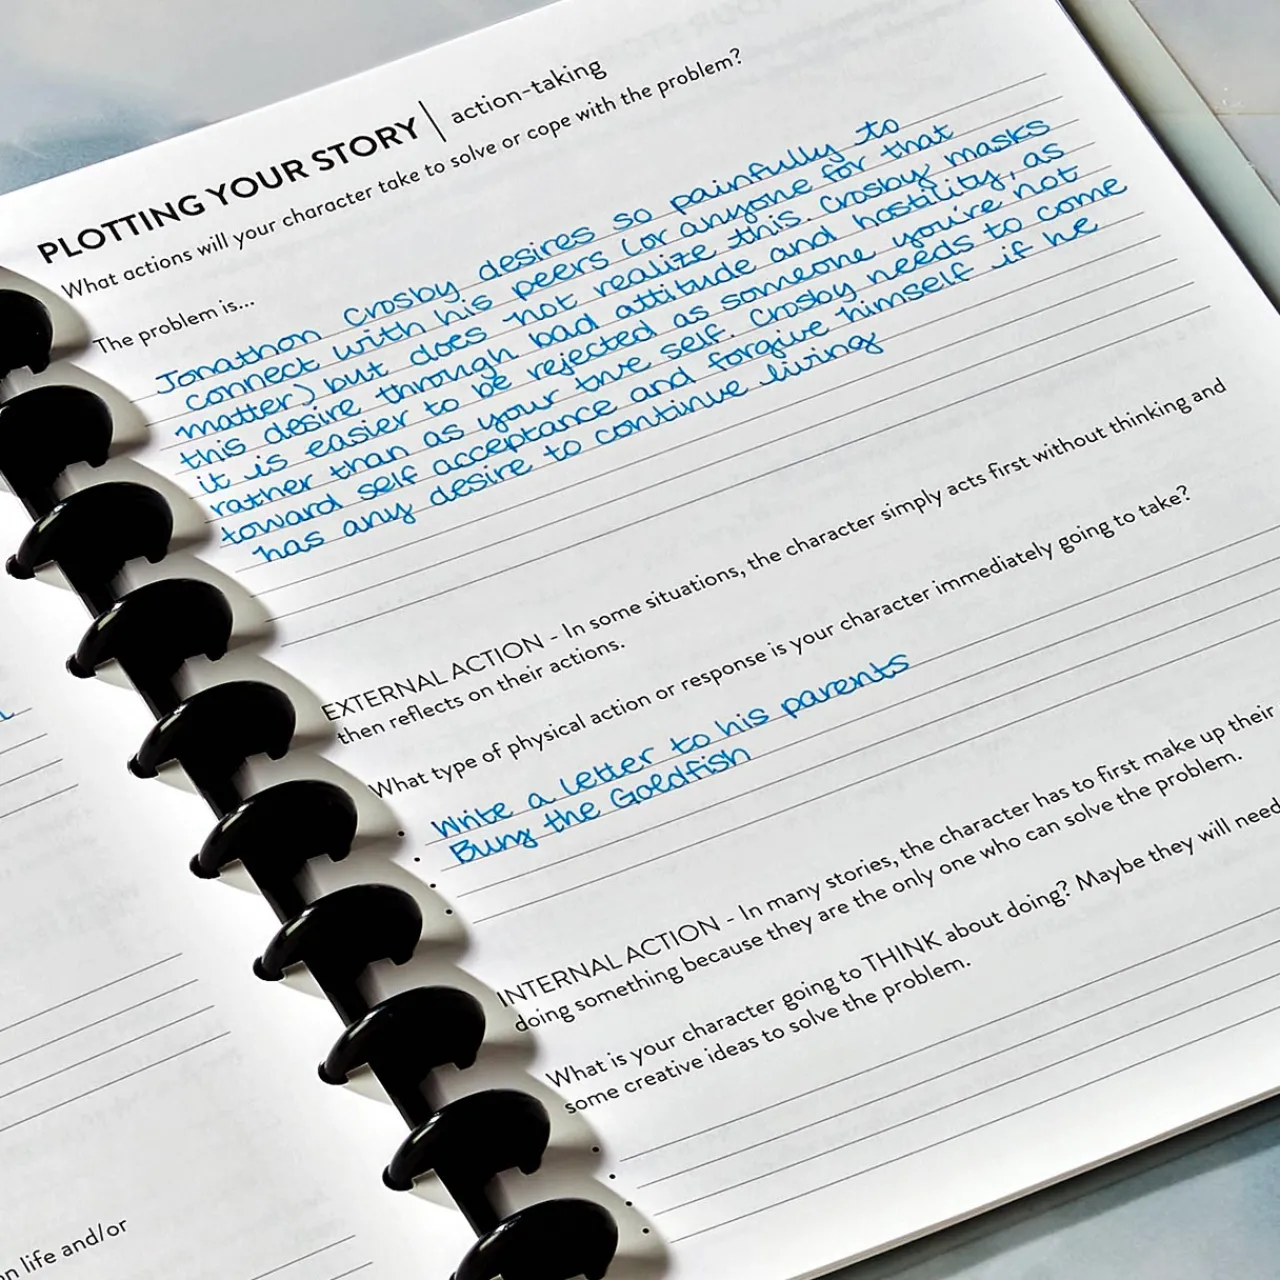 PLOTTING YOUR STORY | action-taking
What actions will your character take to solve or cope with the problem?
The problem is...
Jonathon Crosby desires so painfully to
connect with his peers (or anyone for that
matter) but does not realize this. Crosby masks
this desire through bad attitude and hostility, as
it is easier to be rejected as someone you're not
rather than as your true self. Crosby needs to come
toward self acceptance and forgive himself if he
has any desire to continue living
EXTERNAL ACTION - In some situations, the character simply acts first without thinking and
then reflects on their actions.
What type of physical action or response is your character immediately going to take?
• Write a letter to his parents
• Bury the Goldfish
•
•
INTERNAL ACTION - In many stories, the character has to first make up their
doing something because they are the only one who can solve the problem.
What is your character going to THINK about doing? Maybe they will need
some creative ideas to solve the problem.
•
•
•
•
life and/or